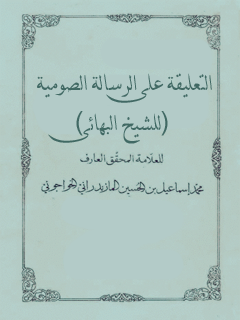 التعليقة على الرسالة الصومية
(للشيخ البهائي)
للعلامة المحقّق العارف
محمد إسماعيل بن الحسين المازندراني الخواجوئي